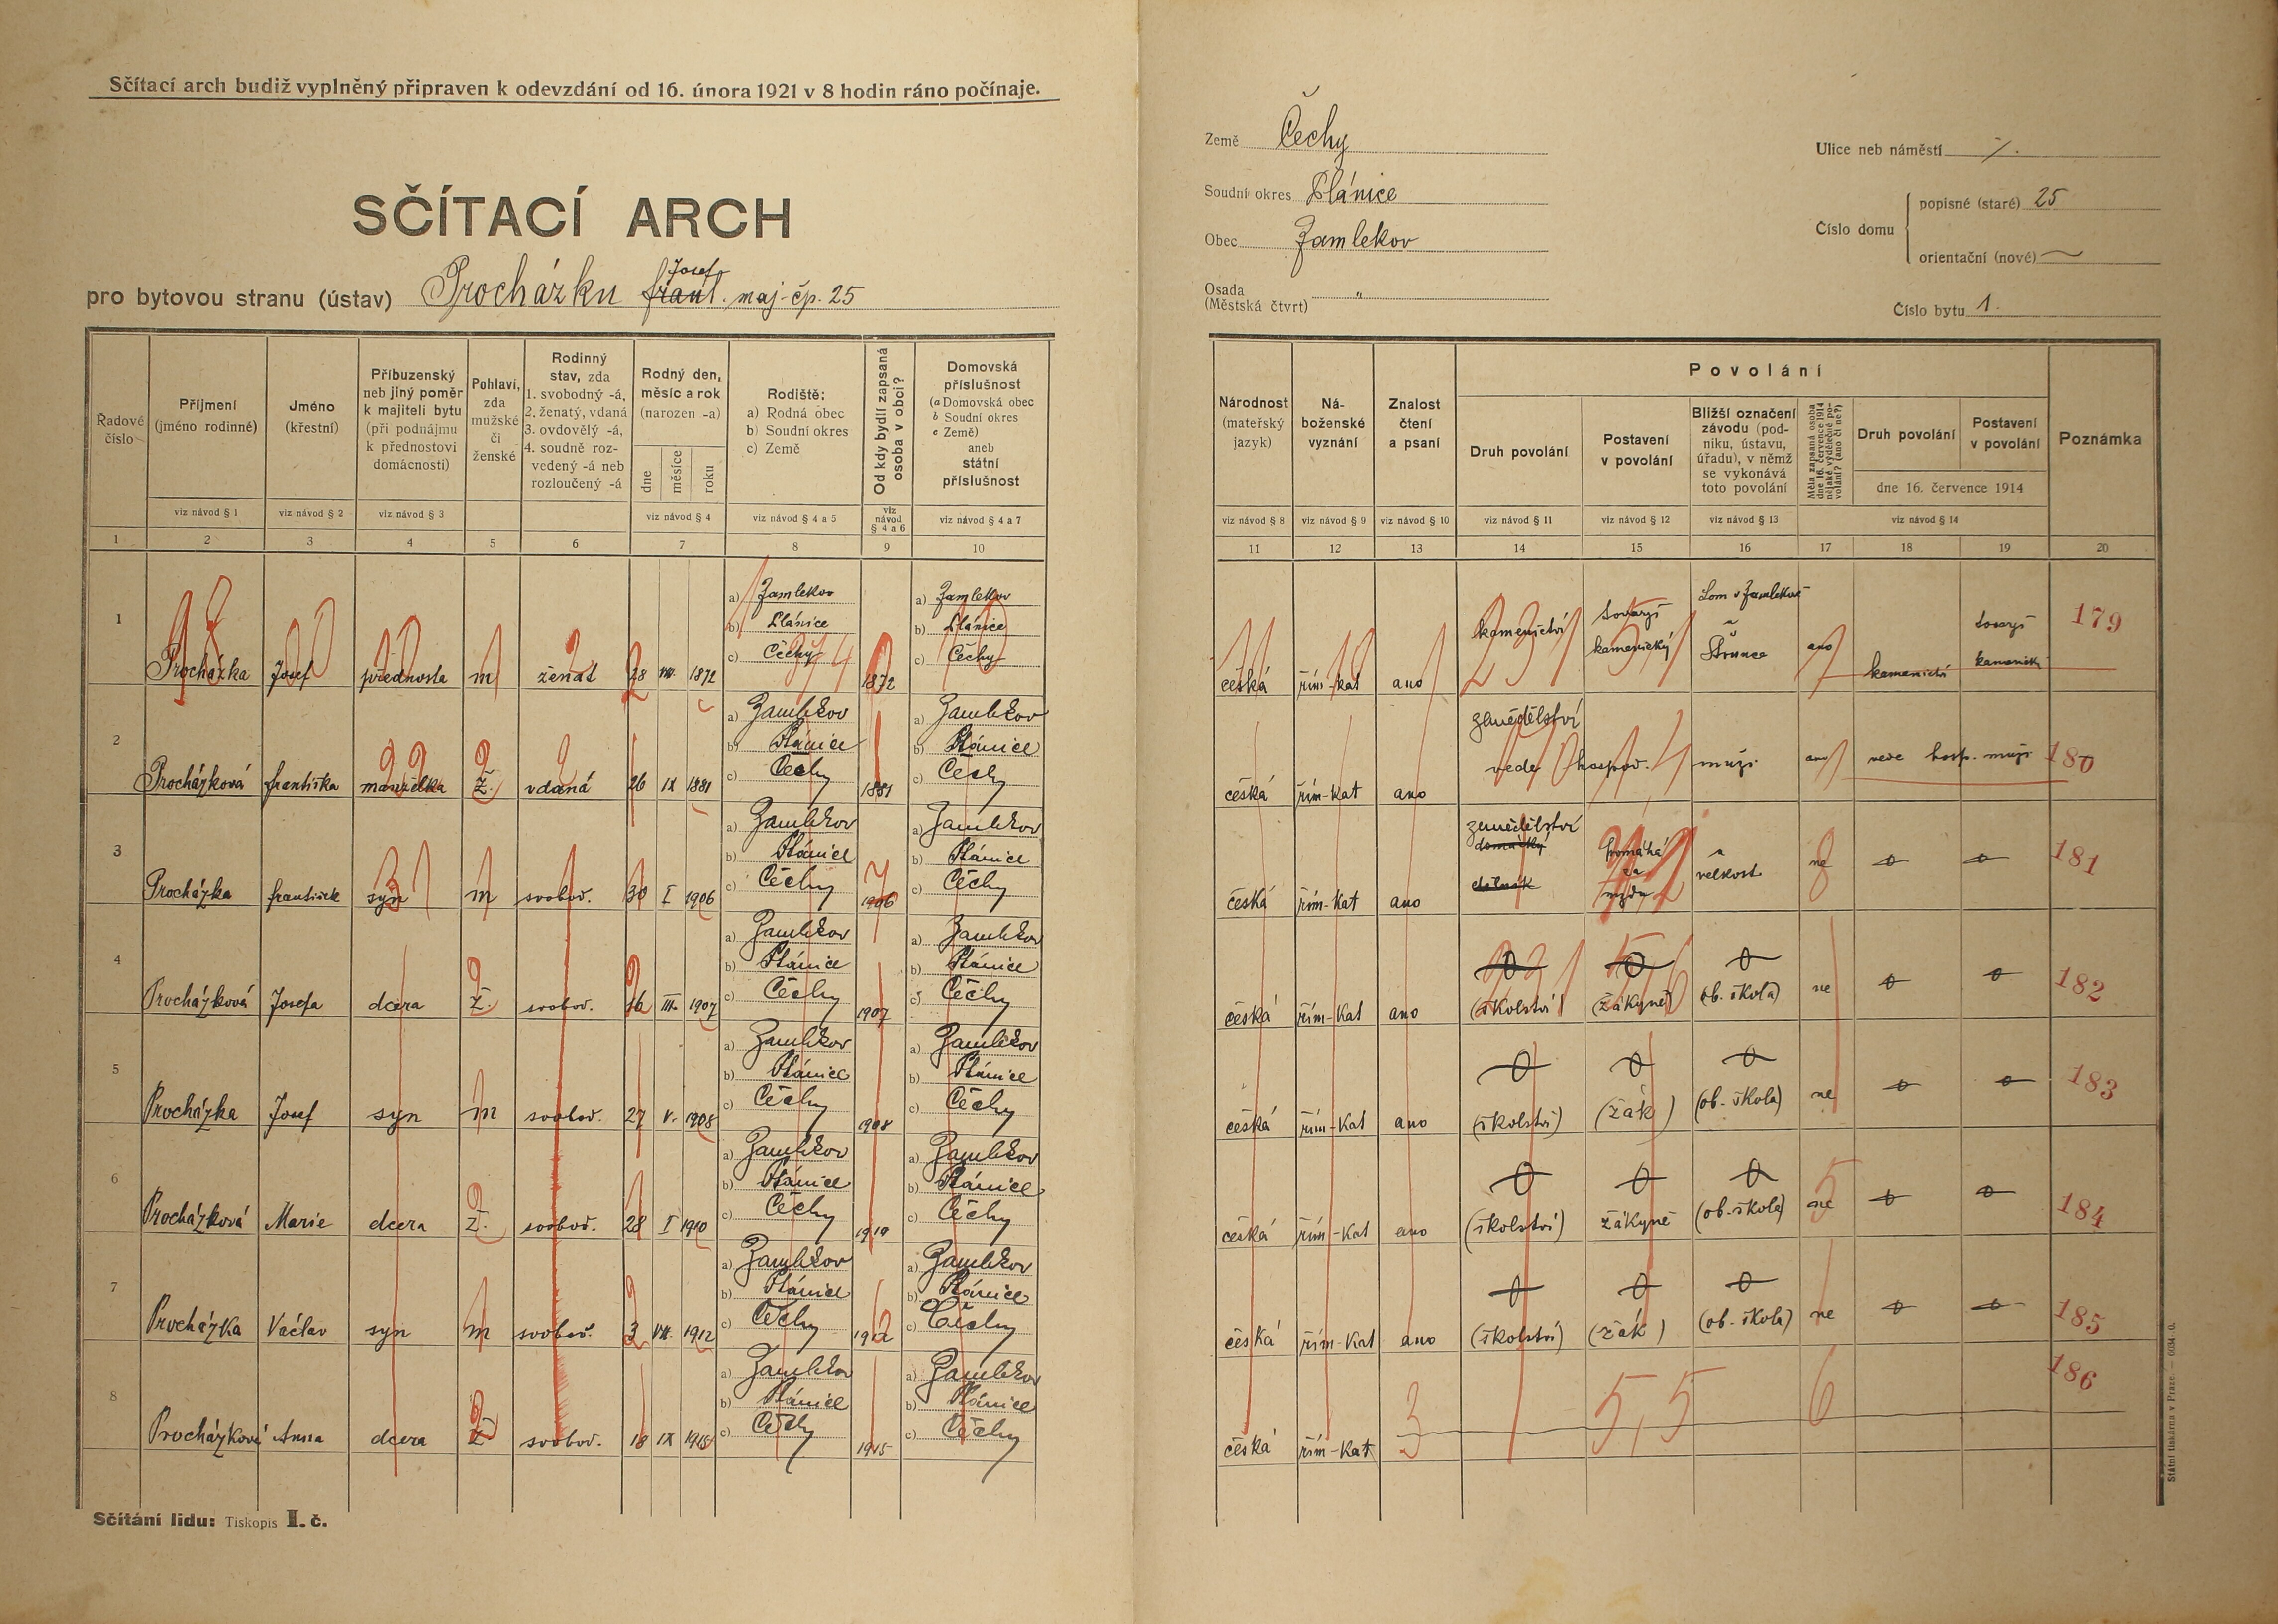 Sčítací arch budiž vyplněný připraven k odevzdání od 16. února 1921 v 8 hodin ráno počínaje.
SČÍTACÍ ARCH
pro bytovou stranu (ústav) Procházku frant. Josef maj. čp. 25
Země Čechy
Soudní okres Plánice
Obec Zamlekov
Osada
(Městská čtvrt) "
Ulice neb náměstí
Číslo domu
popisné (staré) 25
orientační (nové)
Číslo bytu 1.
Řadové číslo
Příjmení (jméno rodinné)
Jméno (křestní)
Příbuzenský neb jiný poměr k majiteli bytu (při podnájmu k přednostovi domácnosti)
Pohlaví, zda mužské či ženské
Rodinný stav, zda 1. svobodný -á, 2. ženatý, vdaná 3. ovdovělý -á, 4. soudně rozvedený -á neb rozloučený -á
Rodný den, měsíc a rok (narozen -a)
dne měsíce roku
Rodiště: a) Rodná obec b) Soudní okres c) Země
Od kdy bydlí zapsaná osoba v obci?
Domovská příslušnost (a Domovská obec b Soudní okres c Země) aneb státní příslušnost
viz návod § 1 viz návod § 2 viz návod § 3 viz návod § 4 viz návod § 4 a 5 viz návod § 4 a 6 viz návod § 4 a 7
1 2 3 4 5 6 7 8 9 10
Národnost (mateřský jazyk)
Náboženské vyznání
Znalost čtení a psaní
Povolání
Druh povolání
Postavení v povolání
Bližší označení závodu (podniku, ústavu, úřadu), v němž se vykonává toto povolání
Měla zapsaná osoba dne 16. července 1914 nějaké výdělečné povolání? (ano či ne?)
Druh povolání
Postavení v povolání
dne 16. července 1914
Poznámka
viz návod § 8 viz návod § 9 viz návod § 10 viz návod § 11 viz návod § 12 viz návod § 13 viz návod § 14
11 12 13 14 15 16 17 18 19 20
1 Procházka Josef přednosta m ženat 28 VIII. 1872 a) Zamlekov b) Plánice c) Čechy 1872 a) Zamlekov b) Plánice c) Čechy
česká řím-kat ano kamenictví tovaryš kamenický Lom v Zamlekově ano kamenictví tovaryš kamenický 179
2 Procházková františka manželka ž. vdaná 26 IX 1881 a) Zamlekov b) Plánice c) Čechy 1881 a) Zamlekov b) Plánice c) Čechy
česká řím-kat ano zemědělství vede hospod. muži ano vede hosp. muži 180
3 Procházka františek syn m svobod. 30 I 1906 a) Zamlekov b) Plánice c) Čechy 1906 a) Zamlekov b) Plánice c) Čechy
česká řím-kat ano zemědělství domácký dělník pomáhá za mzdu velkost. ne 0 0 181
4 Procházková Josefa dcera ž. svobod. 16 III. 1907 a) Zamlekov b) Plánice c) Čechy 1907 a) Zamlekov b) Plánice c) Čechy
česká řím-kat ano 0 (školství) 0 (žákyně) 0 (ob. škola) ne 0 0 182
5 Procházka Josef syn m svobod. 27 V. 1908 a) Zamlekov b) Plánice c) Čechy 1908 a) Zamlekov b) Plánice c) Čechy
česká řím-kat ano 0 (školství) 0 (žák) 0 (ob. škola) ne 0 0 183
6 Procházková Marie dcera ž. svobod. 28 I 1910 a) Zamlekov b) Plánice c) Čechy 1910 a) Zamlekov b) Plánice c) Čechy
česká řím-kat ano 0 (školství) 0 žákyně 0 (ob. škola) ne 0 0 184
7 Procházka Václav syn m svobod. 3 VII. 1912 a) Zamlekov b) Plánice c) Čechy 1912 a) Zamlekov b) Plánice c) Čechy
česká řím-kat ano 0 (školství) 0 (žák) 0 (ob. škola) ne 0 0 185
8 Procházková Anna dcera ž svobod. 18 IX 1915 a) Zamlekov b) Plánice c) Čechy 1915 a) Zamlekov b) Plánice c) Čechy
česká řím-kat 3 5,5 6 186
Sčítání lidu: Tiskopis I. č.
Státní tiskárna v Praze. — 6034-0.